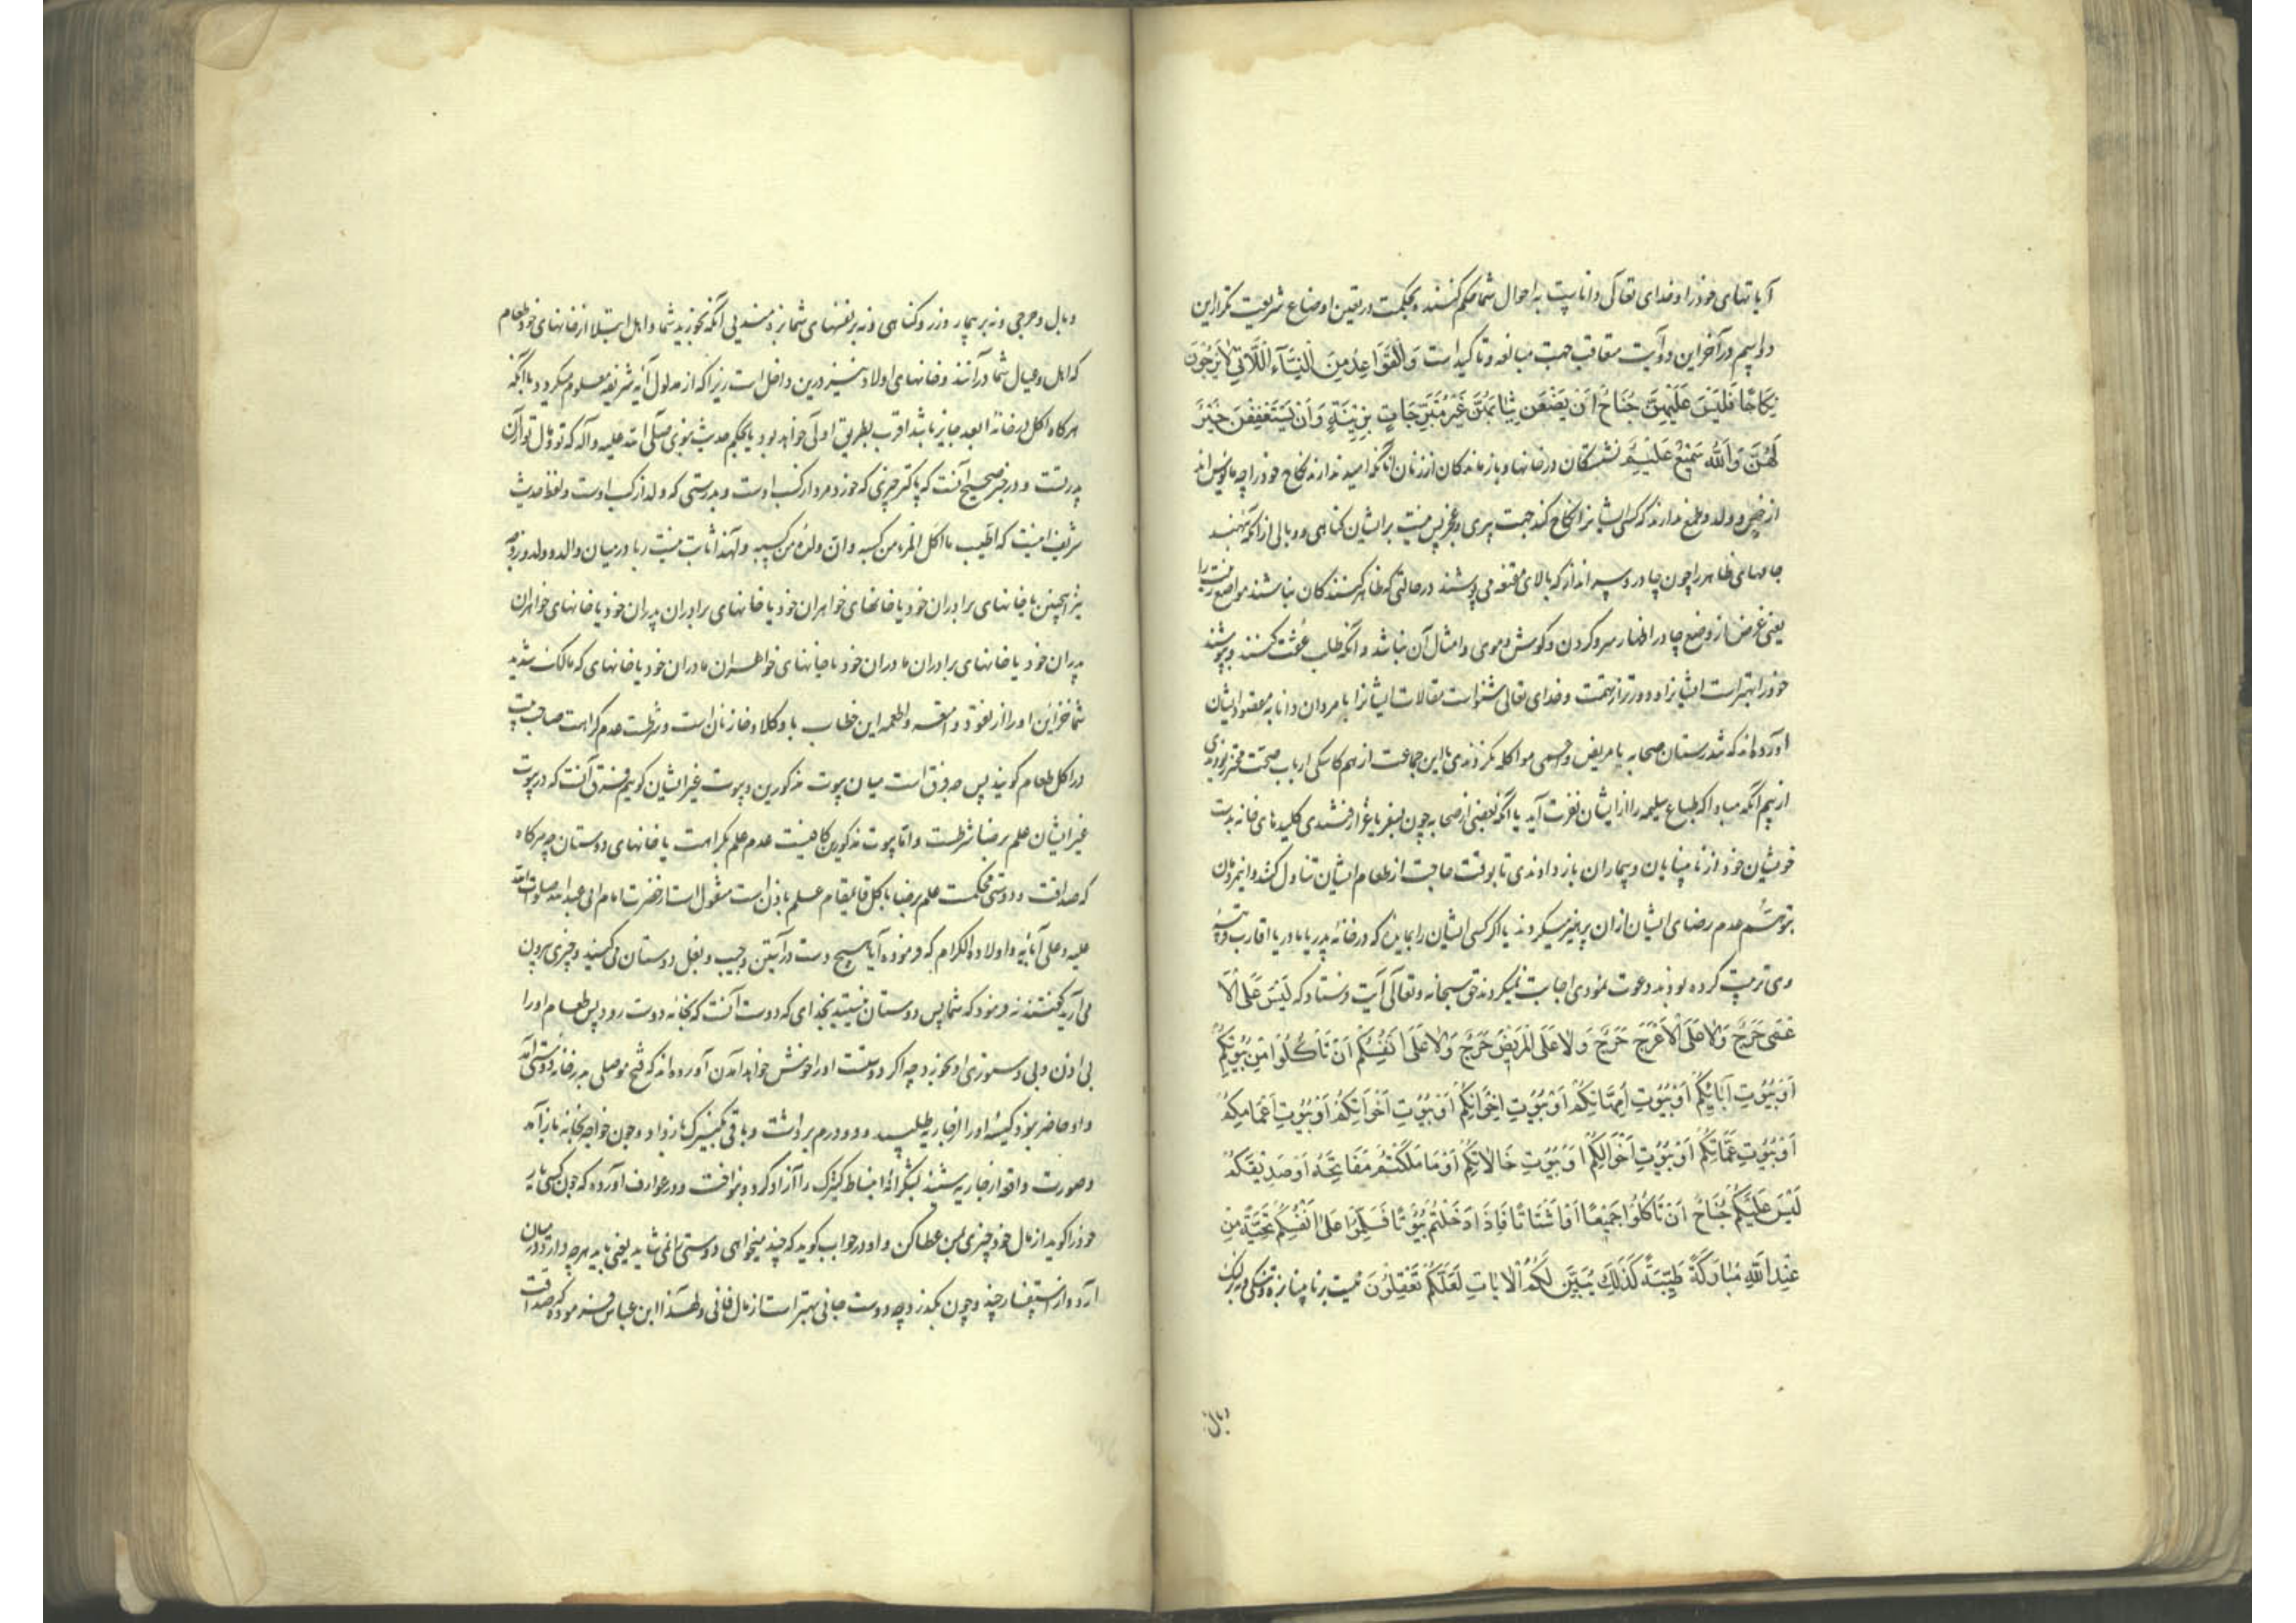 آیاتهای خود را و خدای تعالی داناست به احوال شما حکم کننده بحکمت در تعین اوضاع شریعت تکرار این
دو اسم در آخر این دو آیت متعاقب جهت مبالغه و تاکید است وَالْقَوَاعِدُ مِنَ النِّسَآءِ اللَّاتِی لَا یَرْجُونَ
نِکَاحًا فَلَیْسَ عَلَیْهِنَّ جُنَاحٌ اَنْ یَضَعْنَ ثِیَابَهُنَّ غَیْرَ مُتَبَرِّجَاتٍ بِزِینَةٍ وَاَنْ یَسْتَعْفِفْنَ خَیْرٌ
لَهُنَّ وَاللّٰهُ سَمِیعٌ عَلِیمٌ نشستکان در خانها و باز ماندکان از زنان آنانکه امید ندارند نکاح خود را چه مایوس اند
از حیض و ولد و طمع ندارند که کسی ایشانرا نکاح کند جهت پیری و عجز پس نیست بر ایشان کناهی و وبالی از آنکه بنهند
جامهای ظاهر را چون چادر و سر انداز که بالای مقنعه می پوشند در حالتی که ظاهر کنندکان نباشند مواضع زینت را
یعنی غرض از وضع چادر اظهار سر و کردن و کوش و موی و امثال آن نباشد و آنکه طلب عفت کنند و بپوشند
خود را بهتر است ایشانرا و دورتر از تهمت و خدای تعالی شنواست مقالات ایشانرا با مردان دانا به مقصود ایشان
آورده اند که تندرستان صحابه با مریض و اعمی مواکله نکردندی تا این جماعت از هم کاسکی ارباب صحت محترز بودندی
از بیم آنکه مبادا که طباع سلیمه را از ایشان نفرت آید یا آنکه بعضی از صحابه چون بسفر یا غزا رفتندی کلیدهای خانه بدست
خویشان خود از نابینایان و بیماران باز دادندی تا بوقت حاجت از طعام ایشان تناول کنند و این مردمان
بتوهم عدم رضای ایشان از آن پرهیز میکردند یا اکر کسی ایشان را بمایده که در خانه پدر یا مادر یا اقارب
وی ترتیب کرده بودند دعوت نمودی اجابت نمیکردند حق سبحانه و تعالی آیت فرستاد که لَیْسَ عَلَی الْاَ
عْمٰی حَرَجٌ وَلَا عَلَی الْاَعْرَجِ حَرَجٌ وَلَا عَلَی الْمَرِیضِ حَرَجٌ وَلَا عَلٰی اَنْفُسِکُمْ اَنْ تَاْکُلُوا مِنْ بُیُوتِکُمْ
اَوْ بُیُوتِ آبَائِکُمْ اَوْ بُیُوتِ اُمَّهَاتِکُمْ اَوْ بُیُوتِ اِخْوَانِکُمْ اَوْ بُیُوتِ اَخَوَاتِکُمْ اَوْ بُیُوتِ اَعْمَامِکُمْ
اَوْ بُیُوتِ عَمَّاتِکُمْ اَوْ بُیُوتِ اَخْوَالِکُمْ اَوْ بُیُوتِ خَالَاتِکُمْ اَوْ مَا مَلَکْتُمْ مَفَاتِحَهُ اَوْ صَدِیقِکُمْ
لَیْسَ عَلَیْکُمْ جُنَاحٌ اَنْ تَاْکُلُوا جَمِیعًا اَوْ اَشْتَاتًا فَاِذَا دَخَلْتُمْ بُیُوتًا فَسَلِّمُوا عَلٰی اَنْفُسِکُمْ تَحِیَّةً مِنْ
عِنْدِ اللّٰهِ مُبَارَکَةً طَیِّبَةً کَذٰلِکَ یُبَیِّنُ لَکُمُ الْآیَاتِ لَعَلَّکُمْ تَعْقِلُونَ نیست بر نابینا بزه و تنکی و نه بر لنک
وبال
وبال و حرجی و نه بر بیمار وزر و کناهی و نه بر نفسهای شما بزه مندیی آنکه بخورید شما و اهل ابتلا از خانهای خود طعام
که اهل و عیال شما در آنند و خانهای اولاد نیز درین داخل است زیرا که از مدلول آیه شریفه معلوم میکردد با آنکه
هرکاه اکل در خانه ابعد جایز باشد اقرب بطریق اولی خواهد بود یا بحکم حدیث نبوی صلی الله علیه و آله که تو و مال تو از آن
پدر تست و در خبر صحیح آنست که پاکتر چیزی که خورد مرد از کسب اوست و بدرستی که ولد از کسب اوست و لفظ حدیث
شریف اینست که اطیب ما اکل المرء من کسبه و ان ولده من کسبه و لهذا ثابت نیست ربا در میان والد و ولد و زوجه
نیز همچنین یا خانهای برادران خود یا خانهای خواهران خود یا خانهای برادران پدران خود یا خانهای خواهران
پدران خود یا خانهای برادران مادران خود یا خانهای خواهران مادران خود یا خانهای که مالک شدید
شما خزاین او را از نقود و امتعه و اطعمه این خطاب با وکلا و خازنان است و شرطست عدم کراهت صاحب بیت
در اکل طعام کویند پس چه فرق است میان بیوت مذکورین و بیوت غیر ایشان کوییم فرق آنست که در بیوت
غیر ایشان علم برضا شرطست و اما بیوت مذکورین کافیست عدم علم بکراهت یا خانهای دوستان چه هرکاه
که صداقت و دوستی محکمست علم برضا بأکل قایمقام علم باذن است منقول است از حضرت امام ابی عبد الله صلوات الله
علیه و علی آبائه و اولاده الکرام که فرموده آیا هیچ دست در آستین و جیب و بغل دوستان می کنید و چیزی بیرون
می آرید کفتند نه فرمود که شما پس دوستان نیستید بخدای که دوست آنست که بخانه دوست رود پس طعام او را
بی اذن و بی دستوری او بخورد چه اکر دوست است او را خوش خواهد آمدن آورده اند که فتح موصلی بدر خانه دوستی آمد
و او حاضر نبود کیسه او را از جاریه طلبید و دو درم برداشت و باقی بکنیزک باز داد و چون خواجه بخانه باز آمد
و صورت واقعه از جاریه شنید بشکرانه انبساط کنیزک را آزاد کرد و بنواخت و در عوارف آورده که چون کسی با یار
خود را کوید از مال خود چیزی بمن عطا کن و او در جواب کوید که چند میخواهی دوستی را نمی شاید یعنی باید هرچه دارد در میان
آرد و از استفسار چند و چون بکذرد چه دوست جانی بهتر است از مال فانی و لهذا ابن عباس فرموده که صداقت